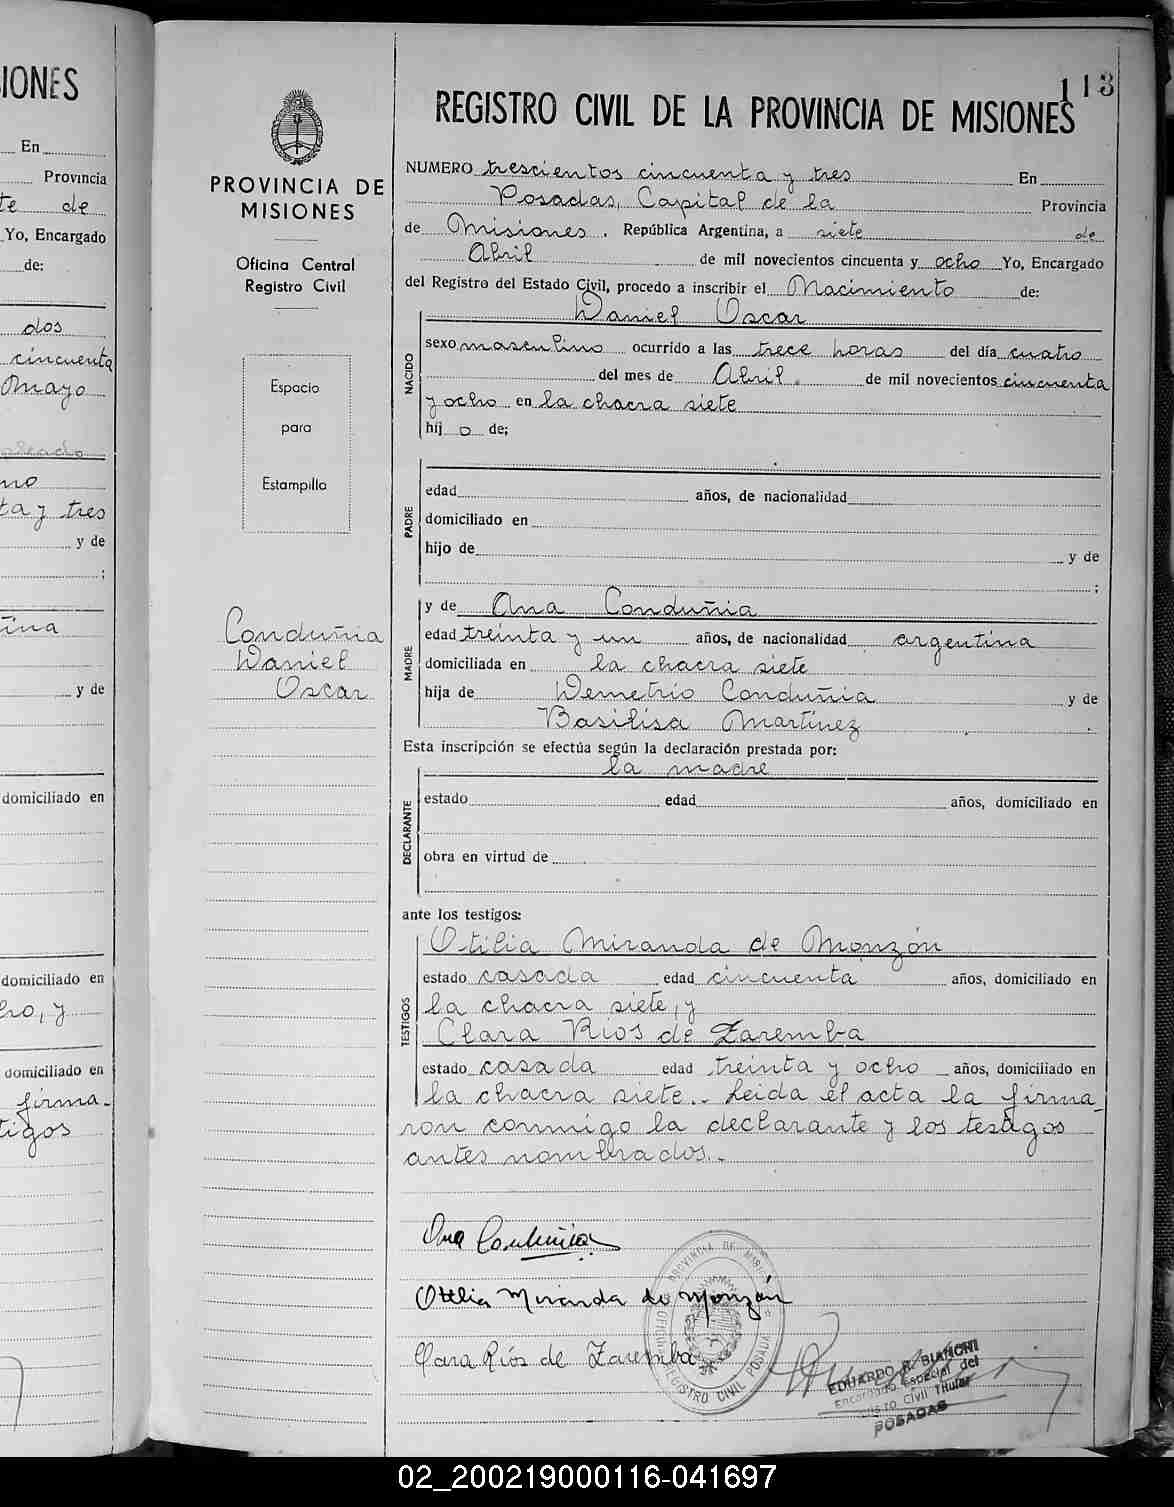 IONES
En
Provincia
te de
Yo, Encargado
de:
dos
cincuenta
Mayo
no
ta y tres
y de
;
ina
y de
domiciliado en
domiciliado en
ho, y
domiciliado en
firma-
tigos
PROVINCIA DE
MISIONES
Oficina Central
Registro Civil
Espacio
para
Estampilla
Conduñia
Daniel
Oscar
113
REGISTRO CIVIL DE LA PROVINCIA DE MISIONES
NUMERO trescientos cincuenta y tres En
Posadas, Capital de la Provincia
de Misiones. República Argentina, a siete de
Abril de mil novecientos cincuenta y ocho Yo, Encargado
del Registro del Estado Civil, procedo a inscribir el Nacimiento de:
Daniel Oscar
NACIDO
sexo masculino ocurrido a las trece horas del día cuatro
del mes de Abril. de mil novecientos cincuenta
y ocho en la chacra siete
hij o de;
PADRE
edad años, de nacionalidad
domiciliado en
hijo de y de
;
MADRE
y de Ana Conduñia
edad treinta y un años, de nacionalidad argentina
domiciliada en la chacra siete
hija de Demetrio Conduñia y de
Basilisa Martínez
Esta inscripción se efectúa según la declaración prestada por:
la madre
DECLARANTE
estado edad años, domiciliado en
obra en virtud de
ante los testigos:
TESTIGOS
Otilia Miranda de Monzón
estado casada edad cincuenta años, domiciliado en
la chacra siete, y
Clara Rios de Zaremba
estado casada edad treinta y ocho años, domiciliado en
la chacra siete.. Leida el acta la firma-
ron conmigo la declarante y los testigos
antes nombrados..
Ana Conduñia
Otilia Miranda de Monzón
Clara Ríos de Zaremba
PROVINCIA DE MISIONES
REGISTRO CIVIL POSADAS
EDUARDO R. BIANCHI
Encargado Especial del
Registro Civil Titular
POSADAS
02_200219000116-041697